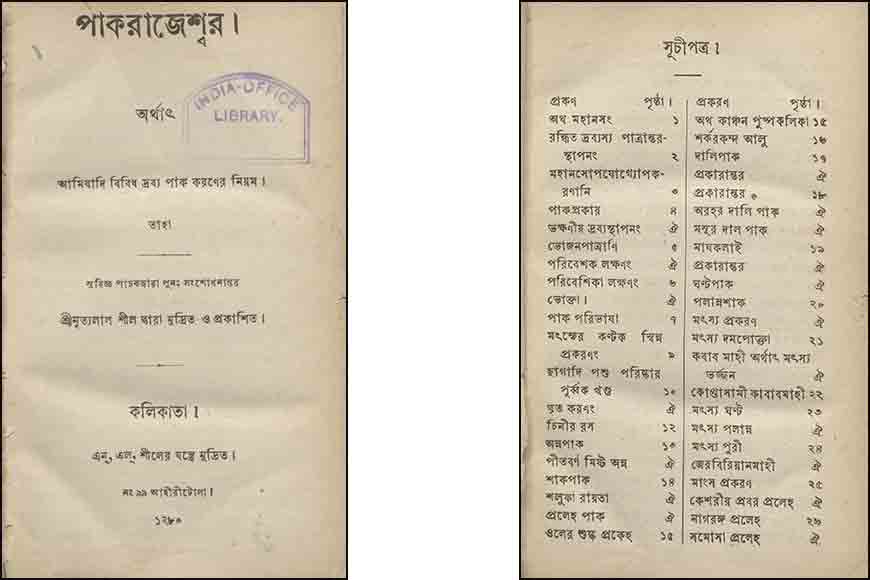 পাকরাজেশ্বর।
INDIA-OFFICE
LIBRARY.
অর্থাৎ
আমিষাদি বিবিধ দ্রব্য পাক করণের নিয়ম।
তাহা
সুবিজ্ঞ পাচকদ্বারা পুনঃ সংশোধনান্তর
শ্রীনৃত্যলাল শীল দ্বারা মুদ্রিত ও প্রকাশিত।
কলিকাতা।
এন্, এল্, শীলের যন্ত্রে মুদ্রিত।
নং ৯৯ আহীরীটোলা।
১২৮০
সূচীপত্র।
প্রকণ পৃষ্ঠা।
অথ মহানসং ১
রন্ধিত দ্রব্যস্য পাত্রান্তর-
স্থাপনং ২
মহানসোপযোগ্যোপক-
রণানি ৩
পাকপ্রকার ৪
ভক্ষণীয় দ্রব্যস্থাপনং ঐ
ভোজনপাত্রাণি ৫
পরিবেশক লক্ষণং ঐ
পরিবেশিকা লক্ষণং ৬
ভোক্তা। ঐ
পাক পরিভাষা ৭
মৎস্যের কণ্টক স্বিন্ন
প্রকরণং ৯
ছাগাদি পশু পরিষ্কার
পূর্ব্বক খণ্ড ১০
ঘৃত করণং ঐ
চিনীর রস ১২
অন্নপাক ১৩
পীতবর্ণ মিষ্ট অন্ন ঐ
শাকপাক ১৪
শলুফা রায়তা ঐ
প্রলেহ পাক ঐ
ওলের শুষ্ক প্রলেহ ১৫
প্রকরণ পৃষ্ঠা।
অথ কাঞ্চন পুষ্পকলিকা ১৫
শর্করকন্দ আলু ১৬
দালিপাক ১৭
প্রকারান্তর ঐ
প্রকারান্তর ১৮
অরহর দালি পাক ঐ
মসূর দাল পাক ঐ
মাষকলাই ১৯
প্রকারান্তর ঐ
ঘণ্টপাক ঐ
পলান্নশাক ২০
মৎস্য প্রকরণ ঐ
মৎস্য দমপোক্তা ২১
কবাব মাহী অর্থাৎ মৎস্য
ভর্জ্জন ঐ
কোপ্তাসামী কাবাবমাহী ২২
মৎস্য ঘণ্ট ২৩
মৎস্য পলান্ন ঐ
মৎস্য পুরী ২৪
জেরবিরিয়ানমাহী ঐ
মাংস প্রকরণ ২৫
কেশরীর প্রবর প্রলেহ ঐ
নাগরঙ্গ প্রলেহ ২৬
সমোসা প্রলেহ ঐ